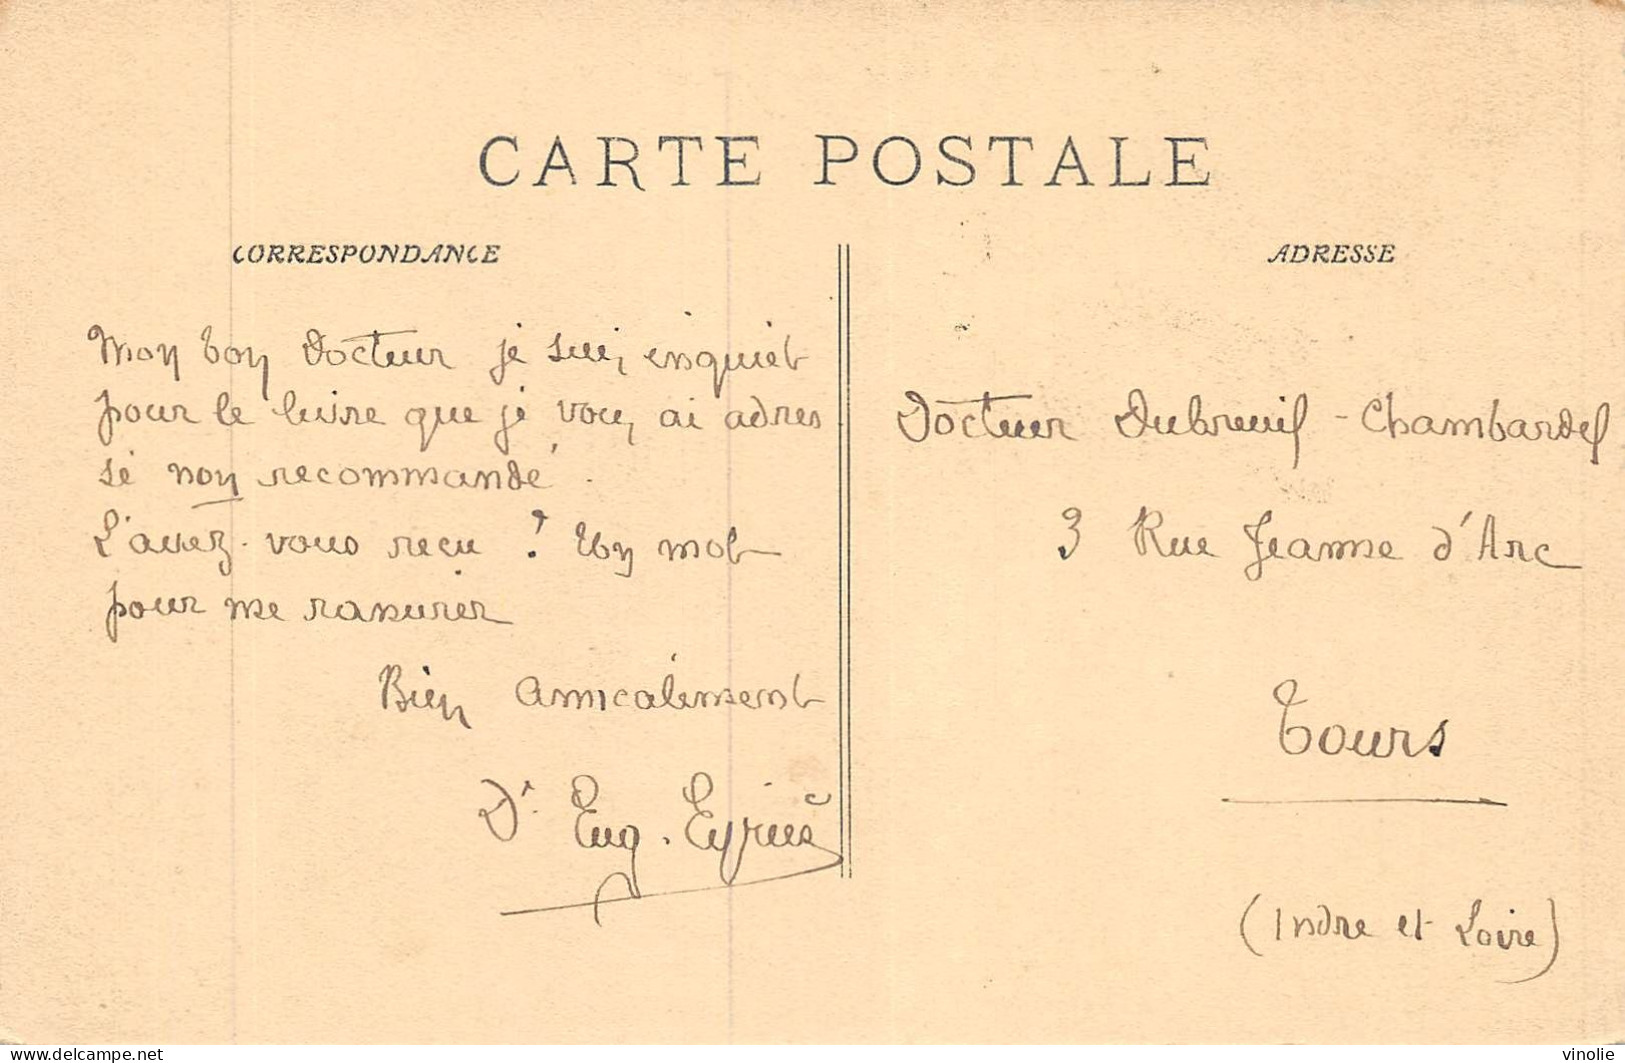 CARTE POSTALE
CORRESPONDANCE
Mon bon Docteur je suis inquiet
pour le livre que je vous ai adres
sé non recommandé.
L'avez-vous reçu ? Un mot
pour me rassurer
Bien amicalement
Dr. Eug.
ADRESSE
Docteur Dubreuil-Chambardel
3 Rue Jeanne d'Arc
Tours
(Indre et Loire)
delcampe.net
vinolie